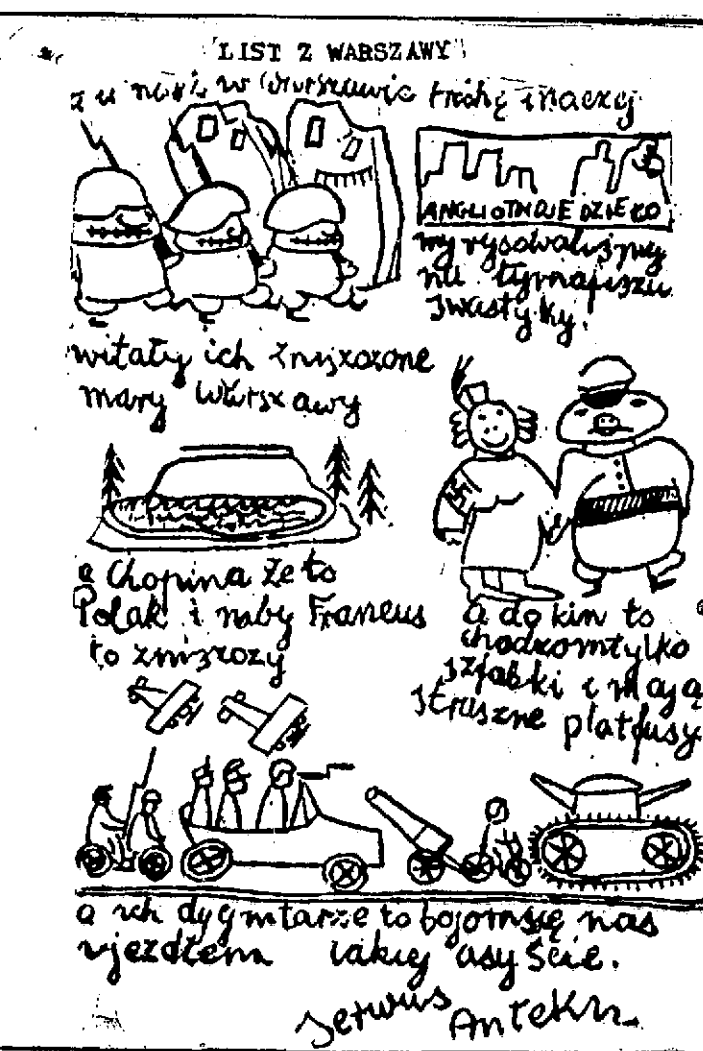 "LIST Z WARSZAWY"
a u nas w Warszawie trohę inaczej
ANGLIO TWOJE DZIEŁO
wyrysowaliśmy
na tym afiszu
swastyky!
witały ich zniszczone
mary Warszawy
a Chopina że to
Polak i niby Francus
to zniszczoży
a do kin to
chodzom tylko
szfabki i mają
straszne platfusy
a ich dygnitarze to bojom się nas
wjeżdżem takiej asyście.
Serwus Antek